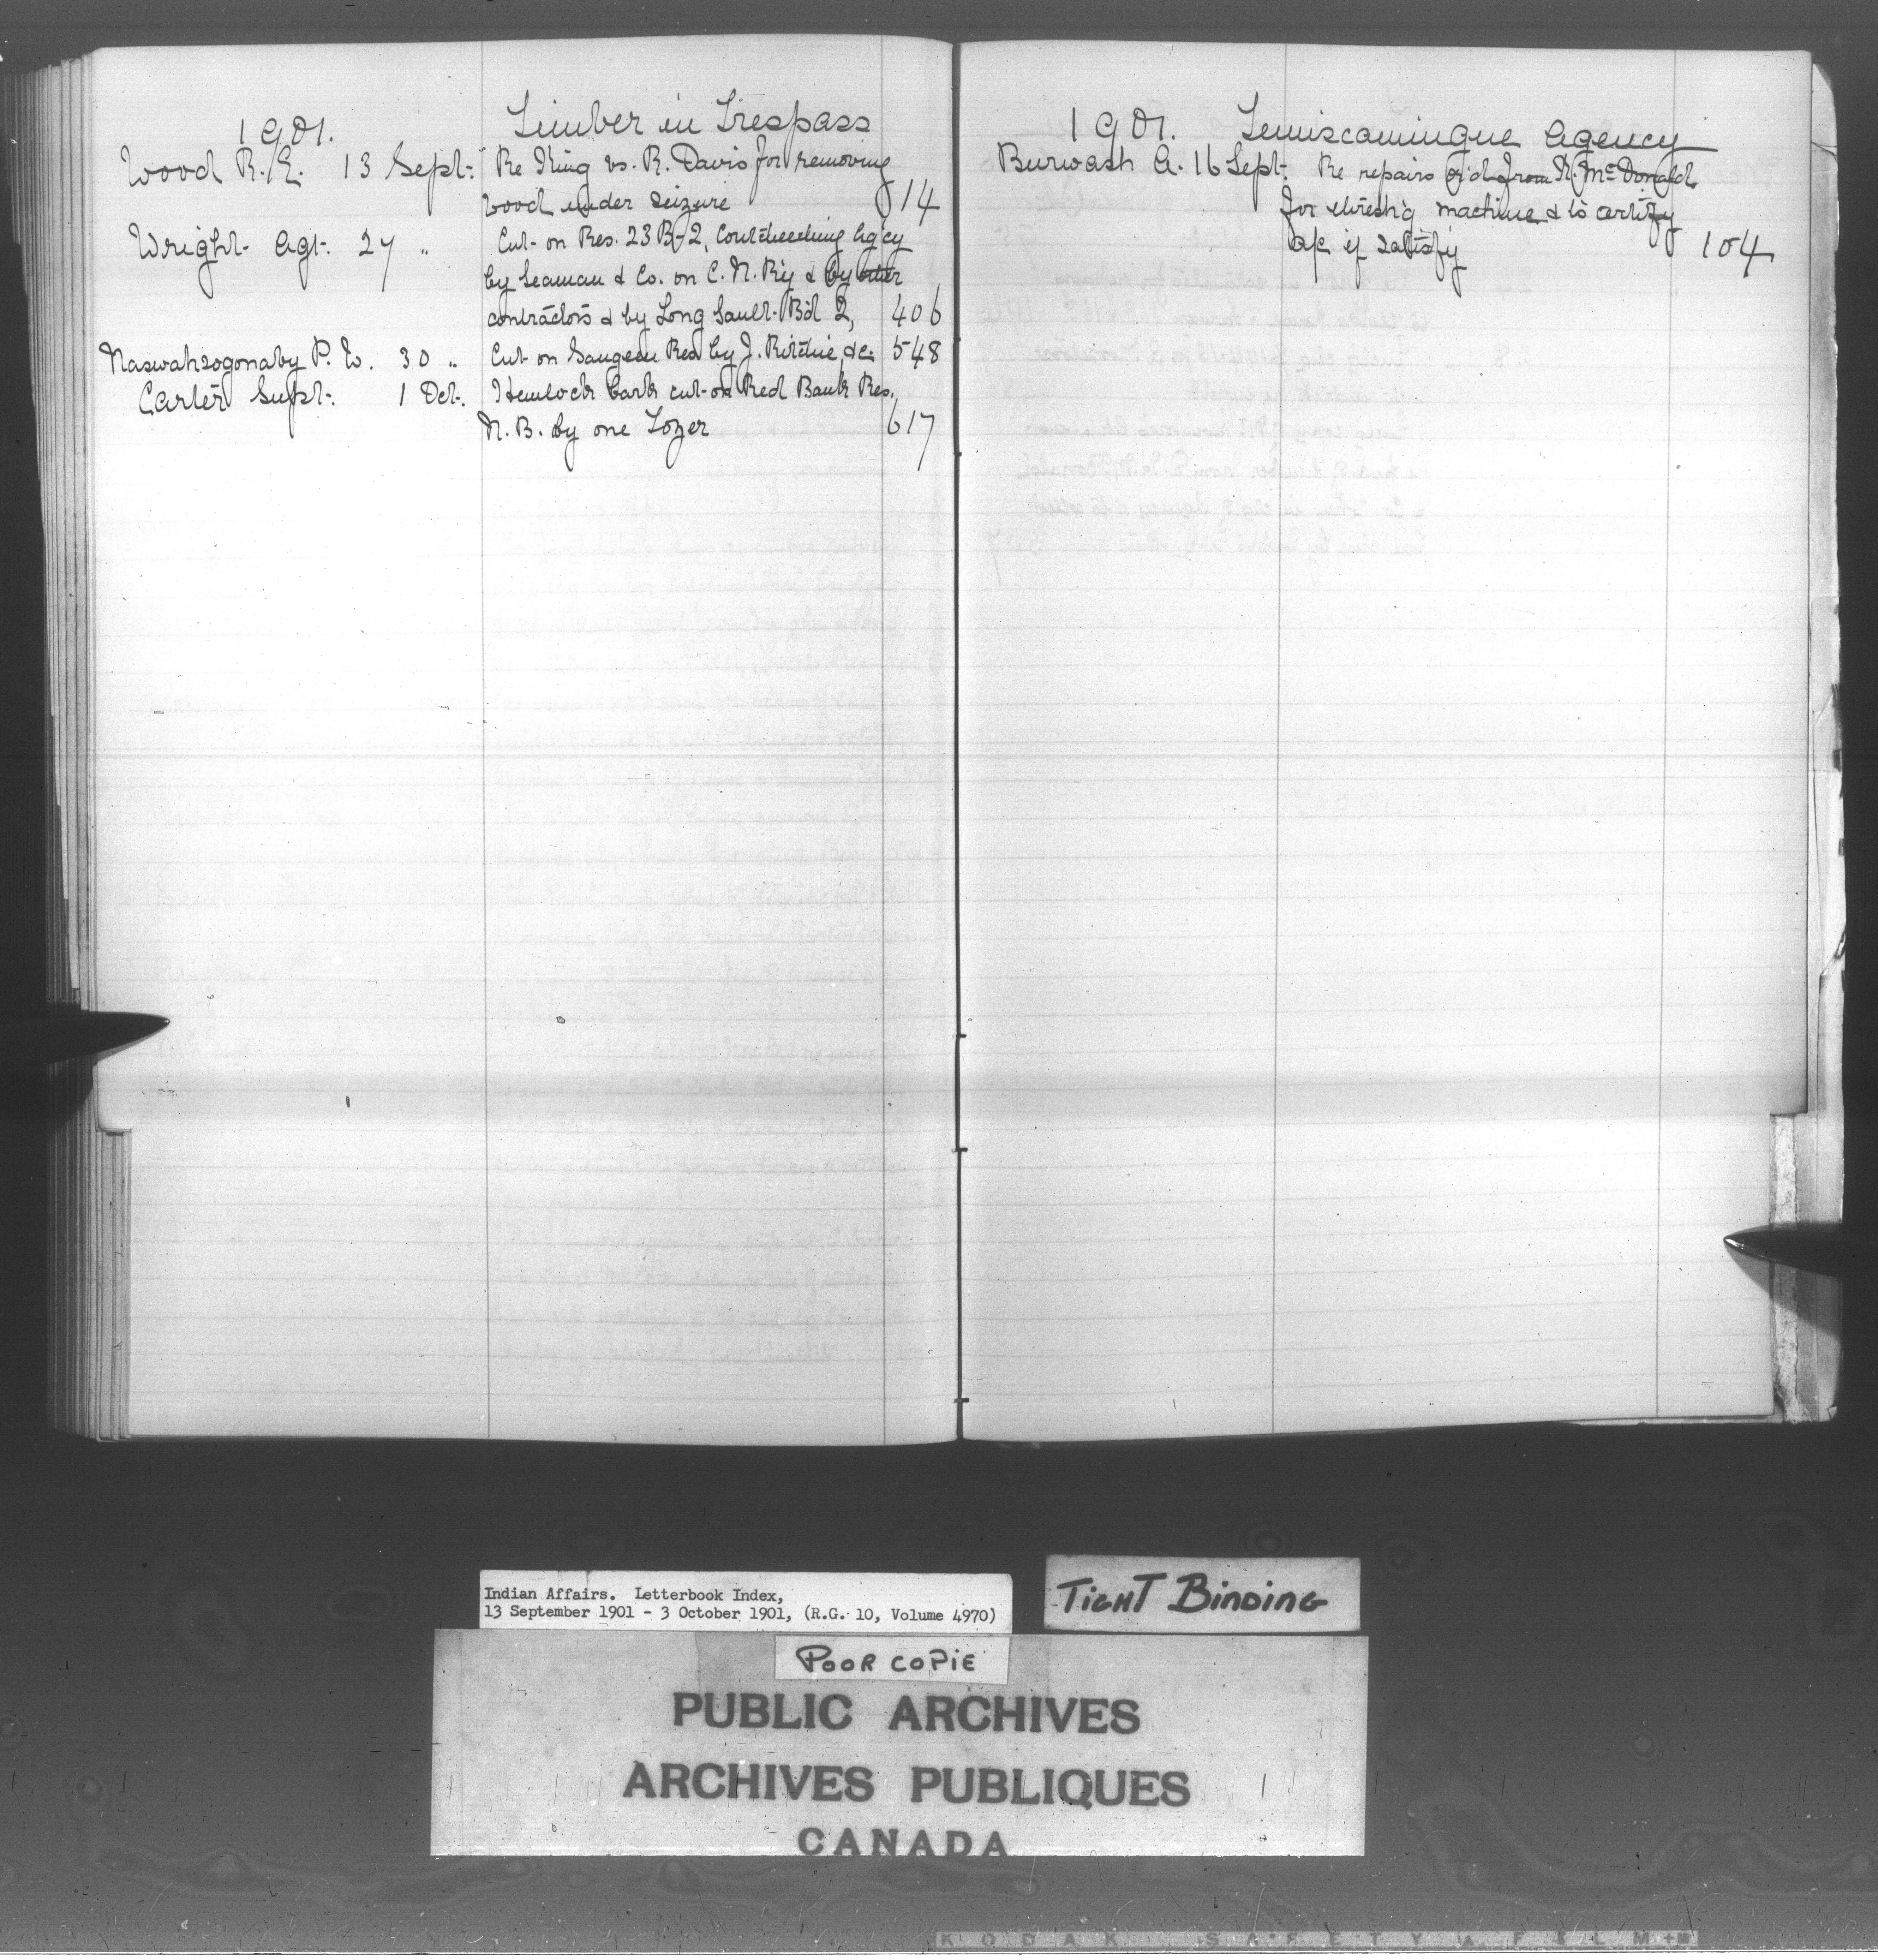 1901. Timber in Trespass
Wood R.G. 13 Sept. Re King vs. R. Davis for removing
wood under seizure 14
Wright Agt. 27 " Cut on Res. 23 B-2, Coutcheeching Ag'cy
by Seaman & Co. on C. N. R'y & by other
contractors & by Long Sault Bd 2, 406
Naswahsogonaby P. W. 30 " Cut on Saugeen Res by J. Ritchie, &c. 548
Carter Supt. 1 Oct. Hemlock bark cut on Red Bank Res.
N. B. by one Lozer 617
1901. Temiscamingue Agency
Burwash A. 16 Sept. Re repairs from McDonald
for thresh'g machine & to certify
a/c if satisf'y 104
Indian Affairs. Letterbook Index,
13 September 1901 - 3 October 1901, (R.G. 10, Volume 4970)
TIGHT BINDING
POOR COPIE
PUBLIC ARCHIVES
ARCHIVES PUBLIQUES
CANADA
KODAK SAFETY FILM